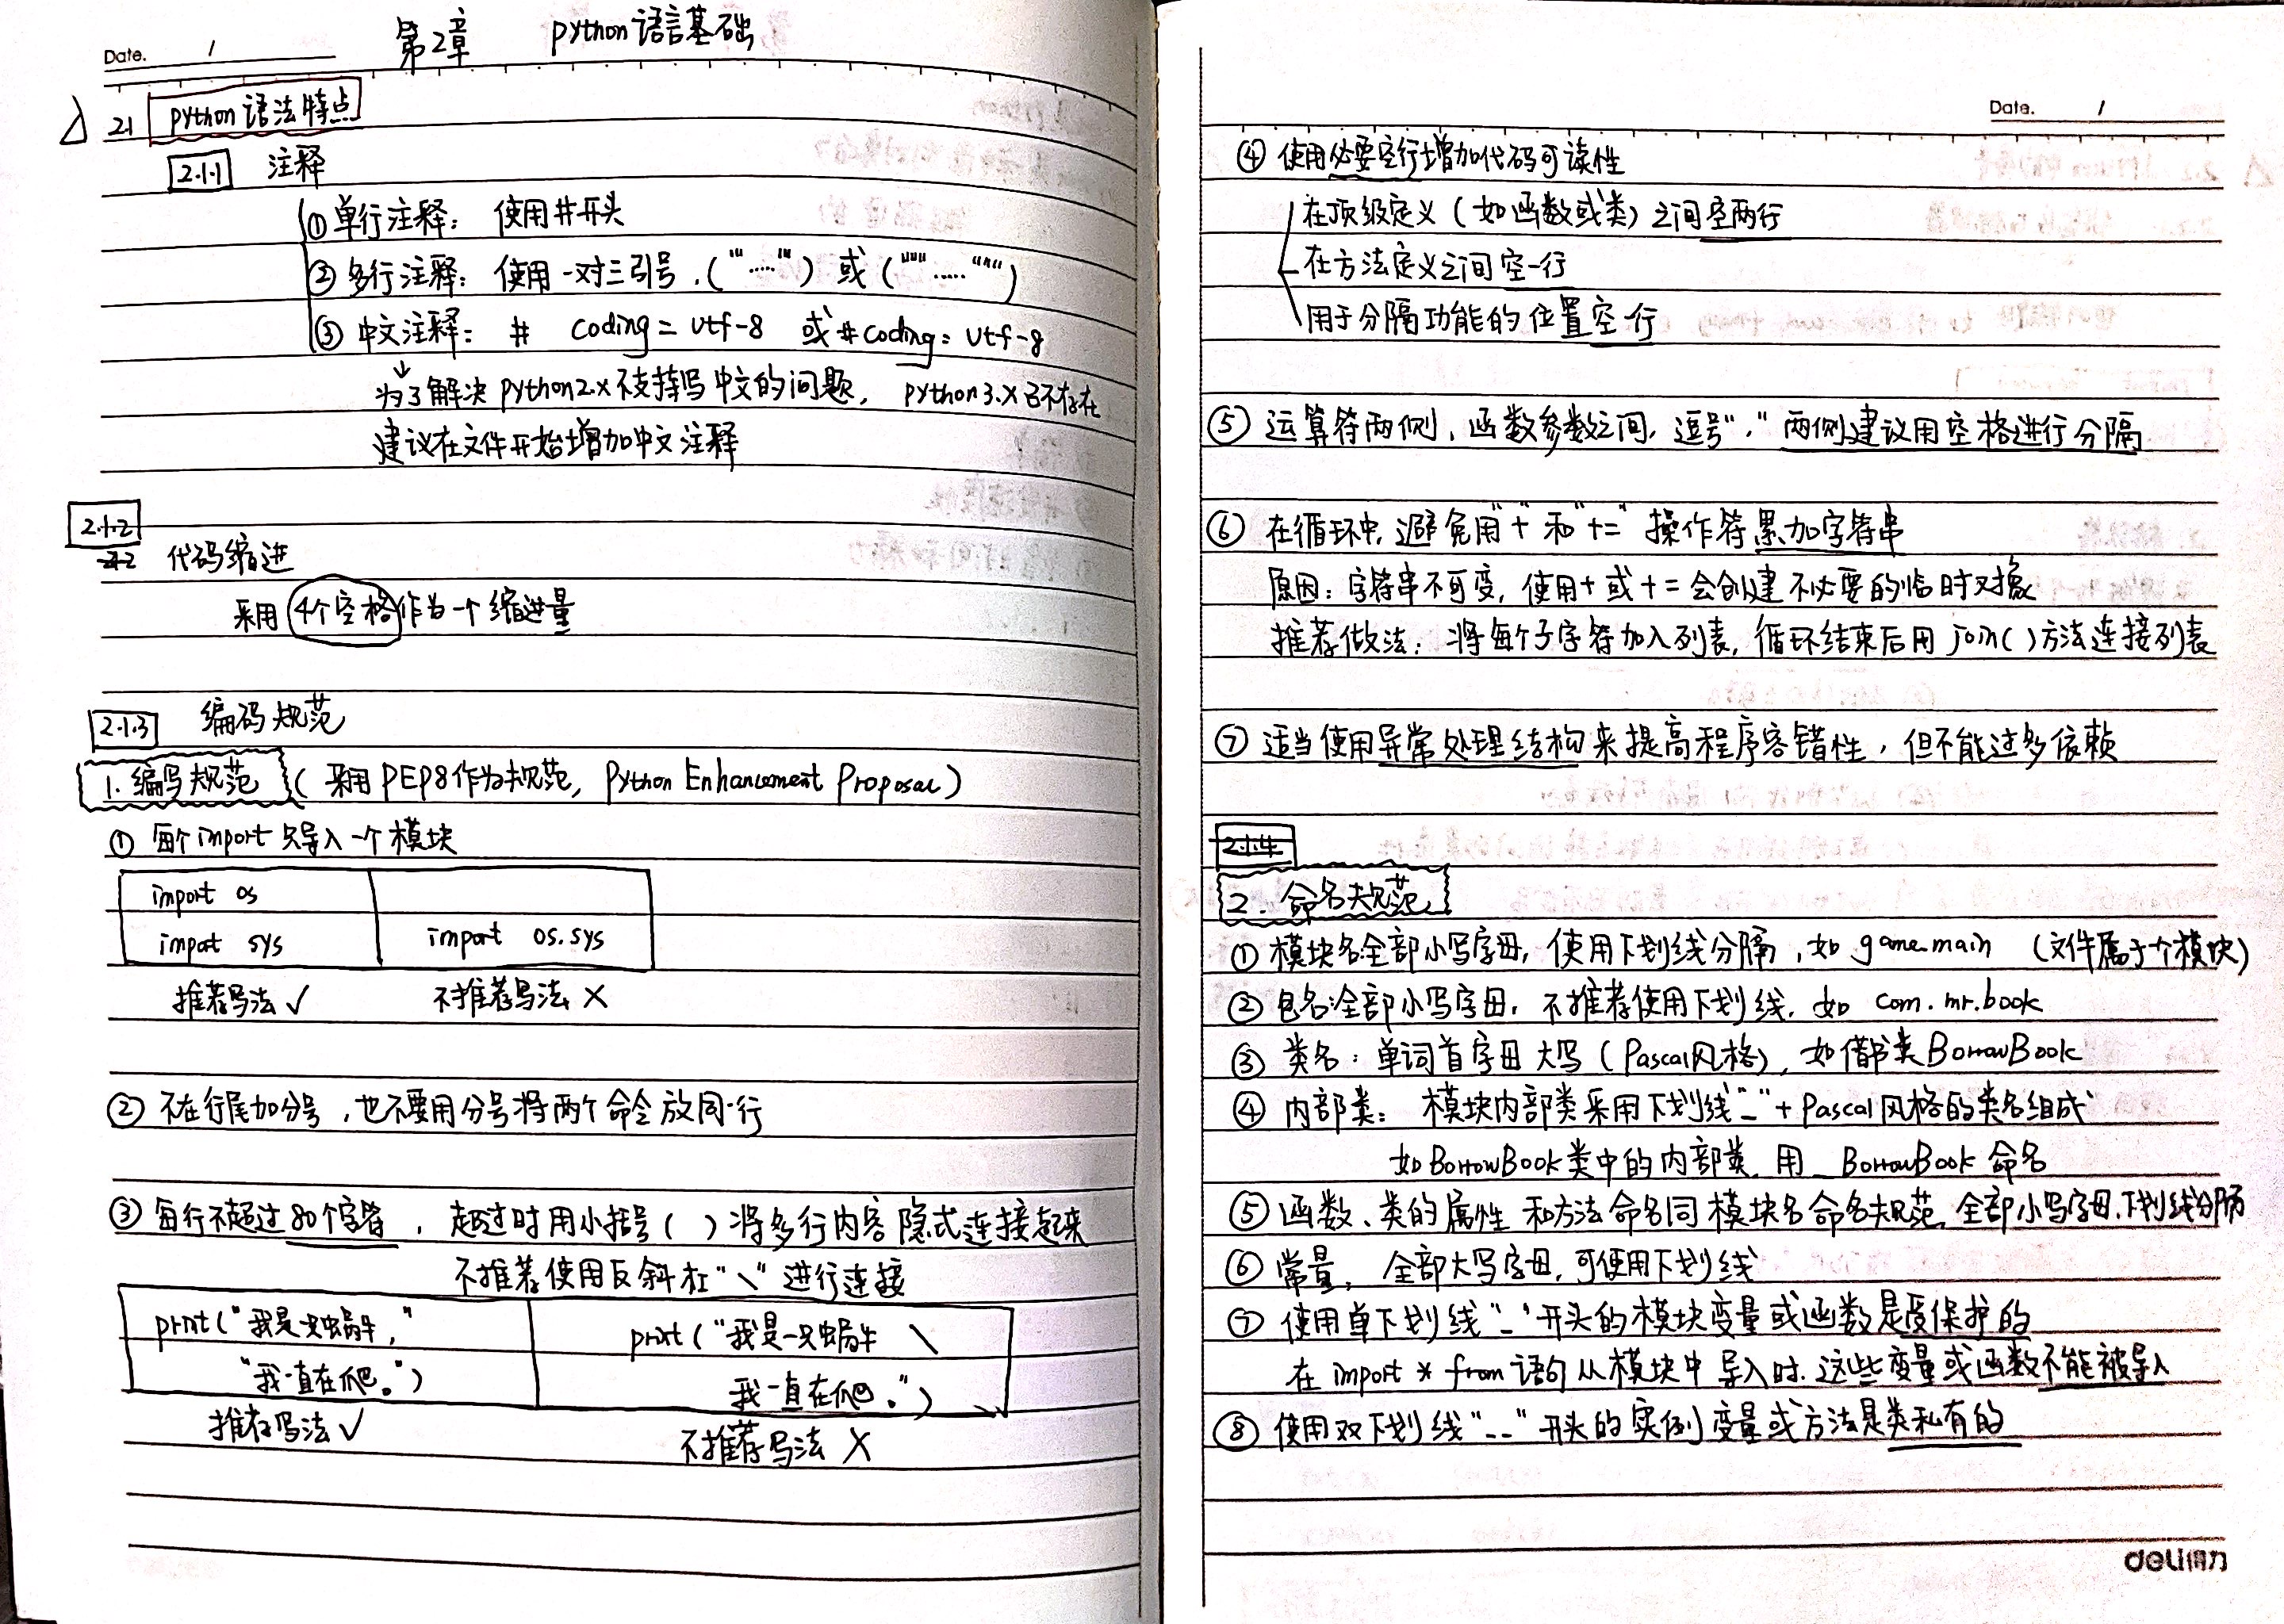 Date. /
第2章 python语言基础
△ 2.1 python语法特点
2.1.1 注释
① 单行注释： 使用#开头
② 多行注释： 使用一对三引号，('''.....''') 或 (""".....""")
③ 中文注释： # coding = utf-8 或 #coding: utf-8
↓
为了解决python2.x不支持写中文的问题， python3.x已不存在
建议在文件开始增加中文注释
2.1.2
代码缩进
采用4个空格作为一个缩进量
2.1.3 编码规范
1. 编写规范 (采用PEP8作为规范, Python Enhancement Proposal)
① 每个import只导入一个模块
import os
import sys
import os.sys
推荐写法 ✓ 不推荐写法 ×
② 不在行尾加分号，也不要用分号将两个命令放同一行
③ 每行不超过80个字符，超过时用小括号( )将多行内容隐式连接起来
不推荐使用反斜杠"\"进行连接
print("我是一只蜗牛,"
"我一直在爬。")
print("我是一只蜗牛 \
我一直在爬。")
推荐写法 ✓
不推荐写法 ×
Date. /
④ 使用必要空行增加代码可读性
在顶级定义(如函数或类)之间空两行
在方法定义之间空一行
用于分隔功能的位置空一行
⑤ 运算符两侧、函数参数之间、逗号","两侧建议用空格进行分隔
⑥ 在循环中,避免用"+"和"+="操作符累加字符串
原因：字符串不可变，使用+或+=会创建不必要的临时对象
推荐做法：将每个子字符加入列表，循环结束后用join()方法连接列表
⑦ 适当使用异常处理结构来提高程序容错性，但不能过多依赖
2.1.4
2. 命名规范
① 模块名全部小写字母，使用下划线分隔，如game_main (文件属于个模块)
② 包名全部小写字母，不推荐使用下划线，如 com.mr.book
③ 类名：单词首字母大写(Pascal风格)，如借书类BorrowBook
④ 内部类： 模块内部类采用下划线"_"+Pascal风格的类名组成
如BorrowBook类中的内部类，用_BorrowBook命名
⑤ 函数、类的属性和方法命名同模块名命名规范，全部小写字母，下划线分隔
⑥ 常量， 全部大写字母，可使用下划线
⑦ 使用单下划线"_"开头的模块变量或函数是受保护的
在import * from语句从模块中导入时，这些变量或函数不能被导入
⑧ 使用双下划线"__"开头的实例变量或方法是类私有的
deli得力